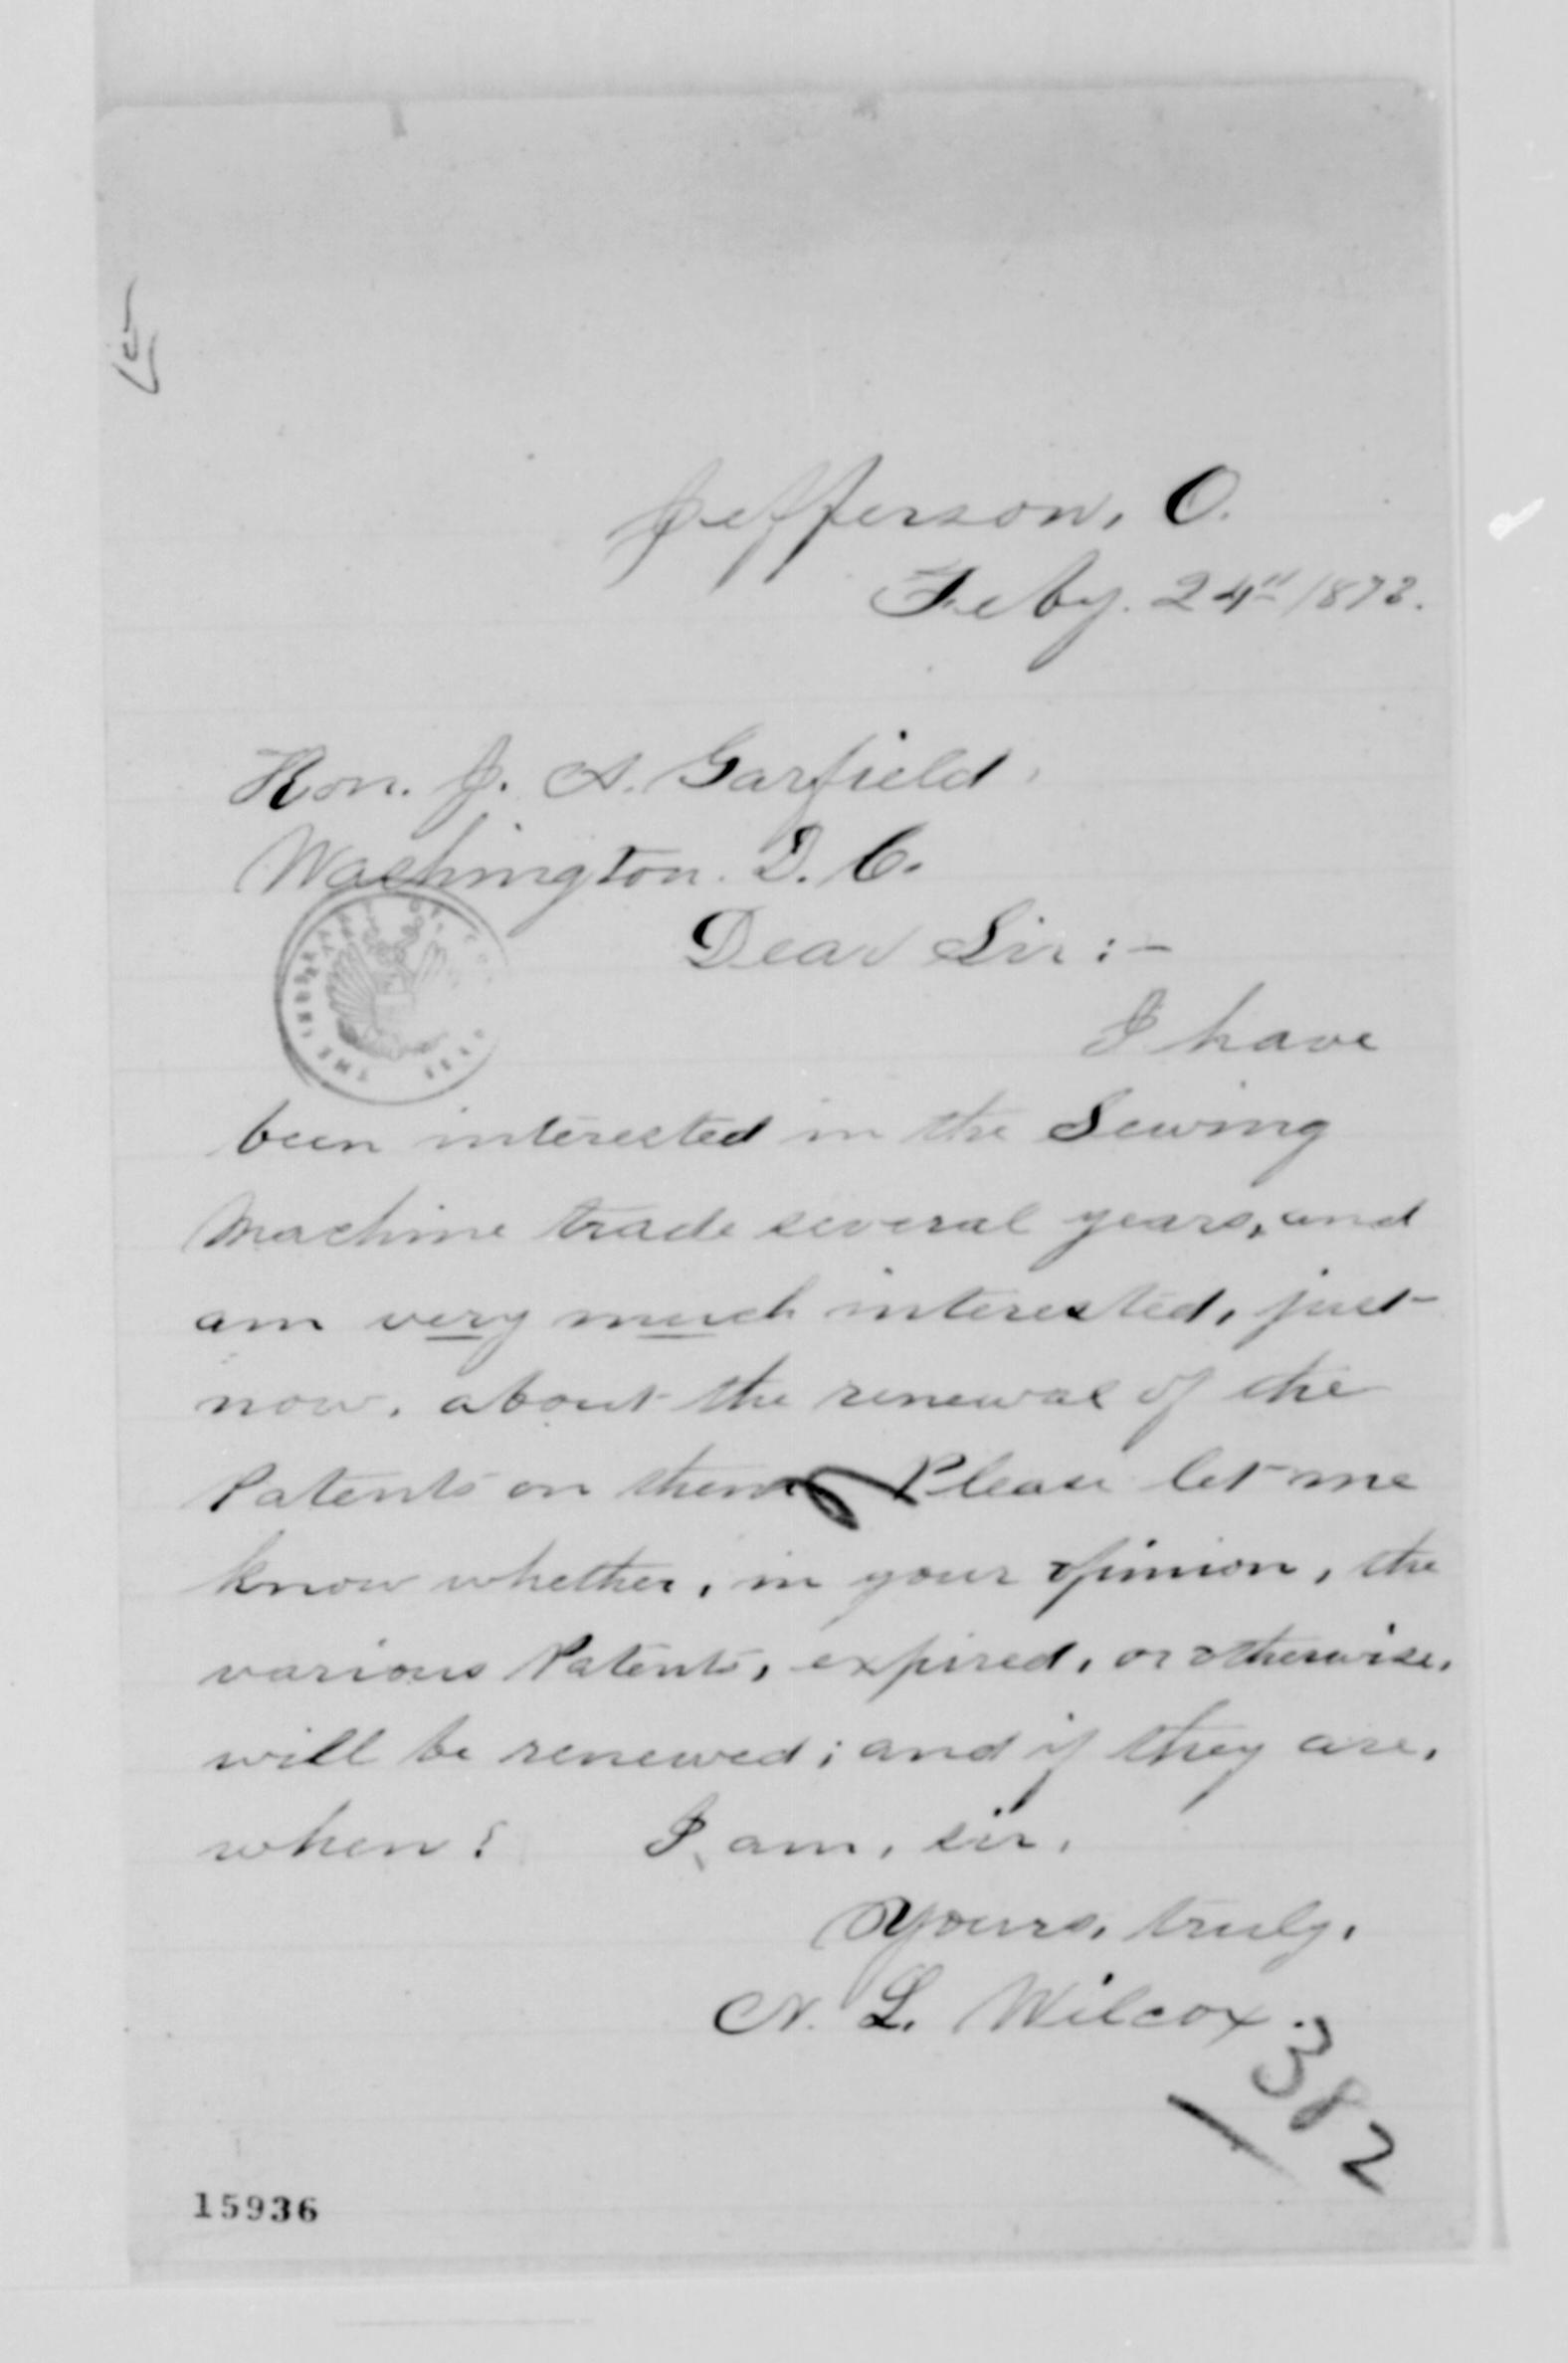 Jefferson, O.
Feby. 24th 1873.
Hon. J. A. Garfield,
Washington. D. C.
Dear Sir:-
I have
been interested in the Sewing
Machine trade several years, and
am very much interested, just
now, about the renewal of the
Patents on them. Please let me
know whether, in your opinion, the
various Patents, expired, or otherwise,
will be renewed; and if they are,
when? I am, sir,
Yours, truly,
N. L. Wilcox.
382
15936